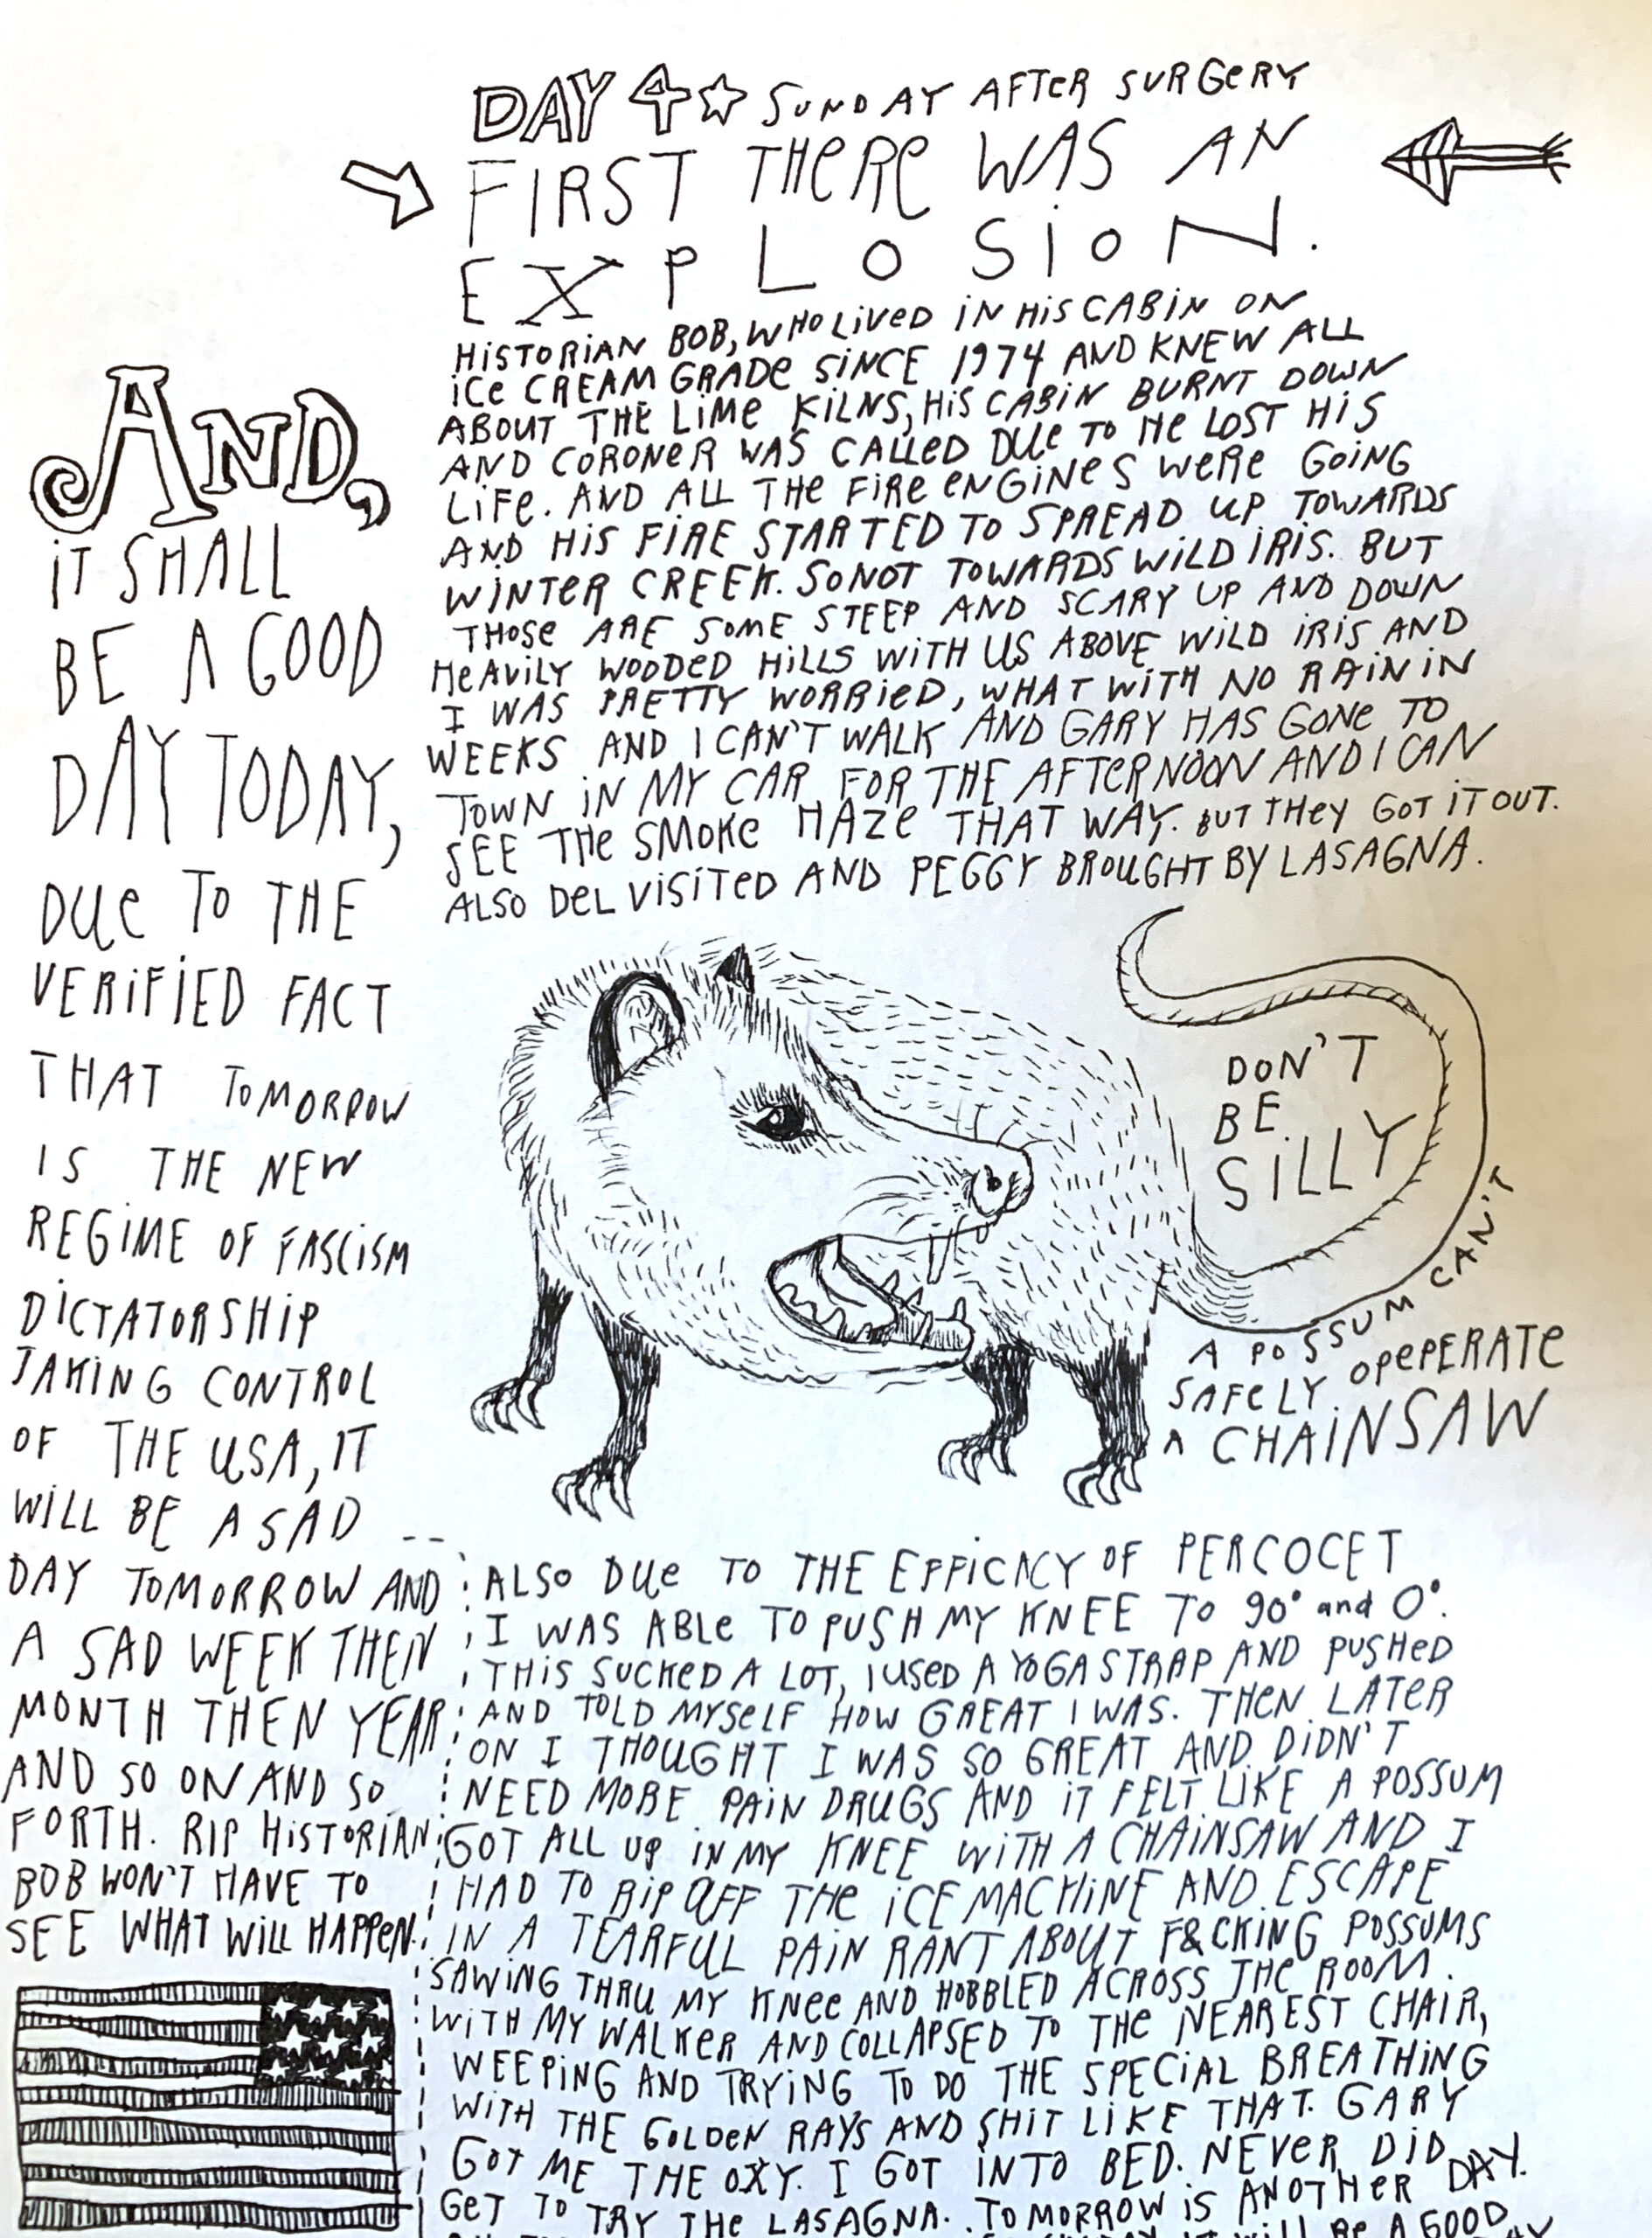 DAY 4 ☆ SUNDAY AFTER SURGERY
FIRST THERE WAS AN
EXPLOSION.
HISTORIAN BOB, WHO LIVED IN HIS CABIN ON
ICE CREAM GRADE SINCE 1974 AND KNEW ALL
ABOUT THE LIME KILNS, HIS CABIN BURNT DOWN
AND CORONER WAS CALLED DUE TO HE LOST HIS
LIFE. AND ALL THE FIRE ENGINES WERE GOING
AND HIS FIRE STARTED TO SPREAD UP TOWARDS
WINTER CREEK. SO NOT TOWARDS WILD IRIS. BUT
THOSE ARE SOME STEEP AND SCARY UP AND DOWN
HEAVILY WOODED HILLS WITH US ABOVE WILD IRIS AND
I WAS PRETTY WORRIED, WHAT WITH NO RAIN IN
WEEKS AND I CAN'T WALK AND GARY HAS GONE TO
TOWN IN MY CAR FOR THE AFTERNOON AND I CAN
SEE THE SMOKE HAZE THAT WAY. BUT THEY GOT IT OUT.
ALSO DEL VISITED AND PEGGY BROUGHT BY LASAGNA.
AND,
IT SHALL
BE A GOOD
DAY TODAY,
DUE TO THE
VERIFIED FACT
THAT TOMORROW
IS THE NEW
REGIME OF FASCISM
DICTATORSHIP
TAKING CONTROL
OF THE USA, IT
WILL BE A SAD
DAY TOMORROW AND
A SAD WEEK THEN
MONTH THEN YEAR
AND SO ON AND SO
FORTH. RIP HISTORIAN
BOB WON'T HAVE TO
SEE WHAT WILL HAPPEN.
DON'T
BE
SILLY
A POSSUM CAN'T
SAFELY OPEPERATE
A CHAINSAW
ALSO DUE TO THE EFFICACY OF PERCOCET
I WAS ABLE TO PUSH MY KNEE TO 90° and 0°.
THIS SUCKED A LOT, I USED A YOGA STRAP AND PUSHED
AND TOLD MYSELF HOW GREAT I WAS. THEN LATER
ON I THOUGHT I WAS SO GREAT AND DIDN'T
NEED MORE PAIN DRUGS AND IT FELT LIKE A POSSUM
GOT ALL UP IN MY KNEE WITH A CHAINSAW AND I
HAD TO RIP OFF THE ICE MACHINE AND ESCAPE
IN A TEARFUL PAIN RANT ABOUT F&CKING POSSUMS
SAWING THRU MY KNEE AND HOBBLED ACROSS THE ROOM
WITH MY WALKER AND COLLAPSED TO THE NEAREST CHAIR,
WEEPING AND TRYING TO DO THE SPECIAL BREATHING
WITH THE GOLDEN RAYS AND SHIT LIKE THAT. GARY
GOT ME THE OXY. I GOT INTO BED. NEVER DID
GET TO TRY THE LASAGNA. TOMORROW IS ANOTHER DAY.
WILL BE A GOOD